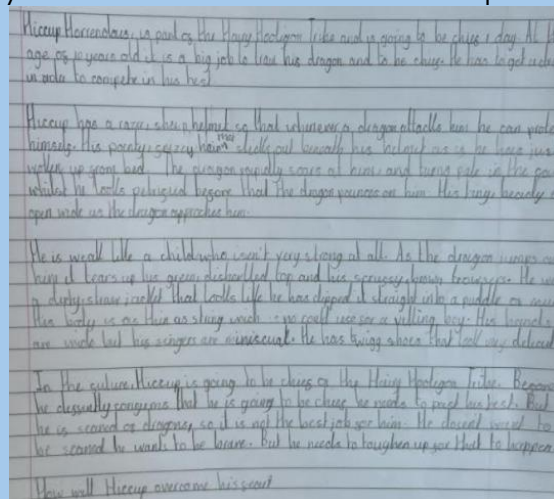 Hiccup Horrendous, is part of the Hairy Hooligan Tribe and is going to be chief 1 day. At the
age of 10 years old it is a big job to train his dragon and to be chief. He has to get a
in order to compete in his test.
Hiccup has a large, shiny helmet so that whenever a dragon attacks him he can prot
himself. His pointy, frizzy hair that sticks out beneath his helmet as if he has jus
woken up from bed. The dragon rapidly soars at him and turns pale in the fa
whilst he looks petrified before that the dragon pounces on him. His huge beady
open wide as the dragon approaches him.
He is weak like a child who isn't very strong at all. As the dragon jumps on
him it tears up his green, top and his scruffy, brown trousers. He w
a dirty, jacket that looks like he has dipped it straight into a puddle of mu
His body is as thin as string which no could see for a viking boy. His hands
are wide but his fingers are miniscual. He has twigg shoes that look very delicat
In the future, Hiccup is going to be chief of the Hairy Hooligan Tribe. Before
he that he is going to be chief he needs to his test. But
he is scared of dragons, so it is not the best job for him. He doesnt want to
be scared he wants to be brave. But he needs to toughen up for that to happen
How will Hiccup overcome his